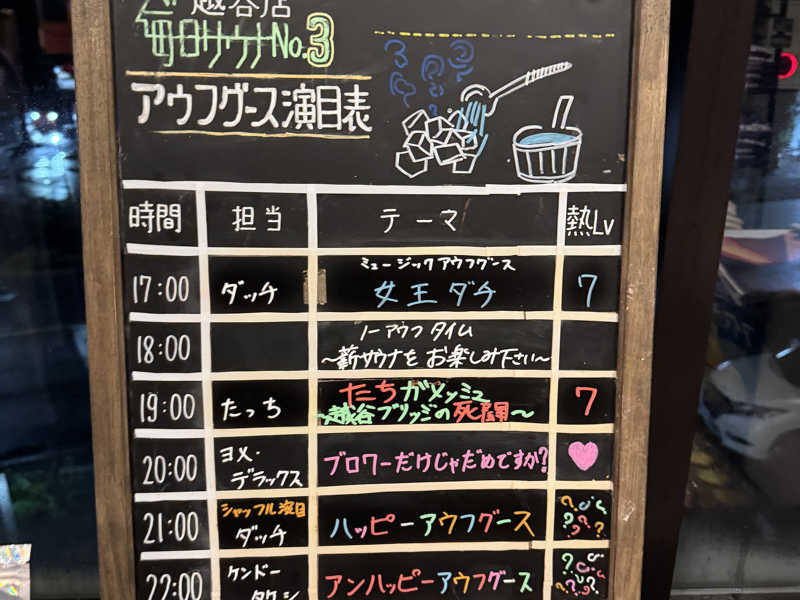 越谷店
毎日サウナNo.3
アウフグース演目表
時間 担当 テーマ 熱Lv
17:00 ダッチ ミュージックアウフグース 女王ダチ 7
18:00 ノーアウフタイム ～薪サウナをお楽しみ下さい～
19:00 たっち たちガメッシュ ～越谷ブリッジの死闘～ 7
20:00 ヨメ・デラックス ブロワーだけじゃだめですか?
21:00 シャッフル演目 ダッチ ハッピーアウフグース ?????
22:00 ケンドータケシ アンハッピーアウフグース ?????